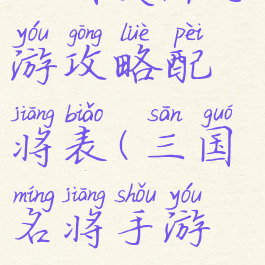 yóu gōng lüè pèi
游攻略配
jiāng biǎo sān guó
将表(三国
míng jiāng shǒu yóu
名将手游